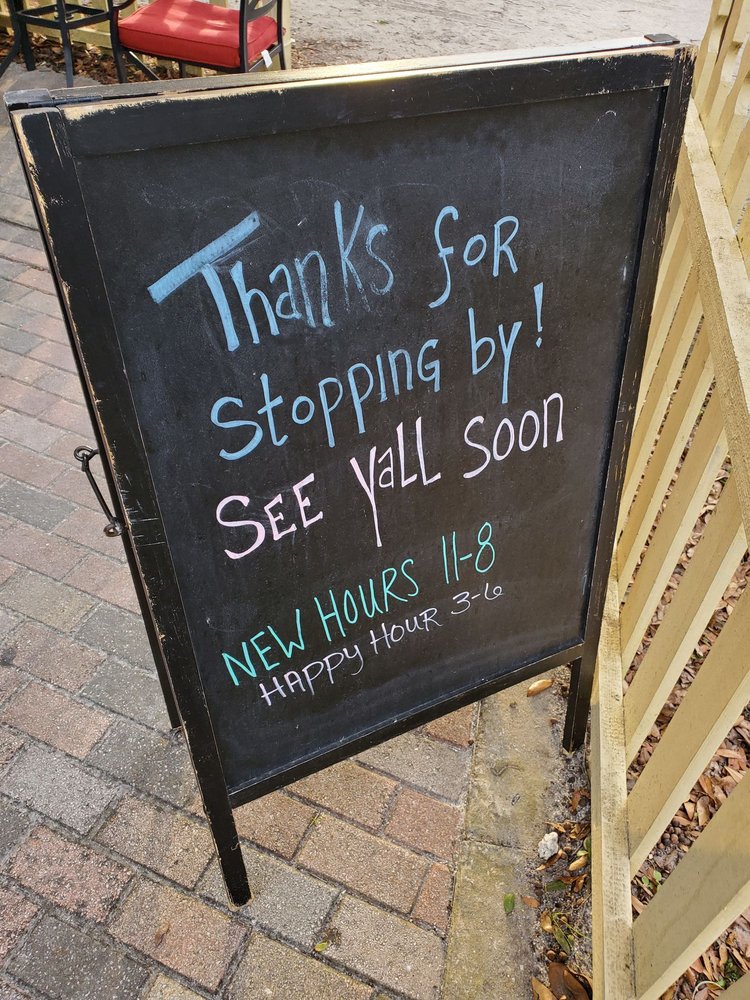 Thanks for
Stopping by!
SEE YaLL Soon
NEW HOURS 11-8
HAPPY HOUR 3-6